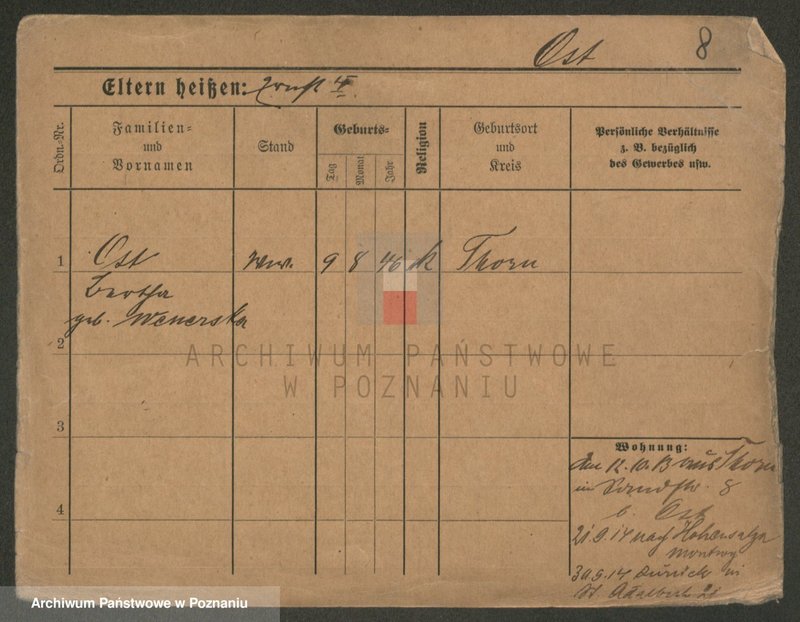 Ost 8
Eltern heißen:
Ordn.-Nr.
Familien-
und
Vornamen
Stand
Geburts-
Tag
Monat
Jahr
Religion
Geburtsort
und
Kreis
Persönliche Verhältnisse
z. B. bezüglich
des Gewerbes usw.
1 Ost Ww. 9 8 46 k Thorn
Bertha
geb. Wenerska
2
ARCHIWUM PAŃSTWOWE
W POZNANIU
3
4
Wohnung:
12.10.13 aus Thorn
in 8
b. Ost
21.9.14 nach Hohensalza
Montwy
30.9.14 zurück in
St. Adalbert 21
Archiwum Państwowe w Poznaniu